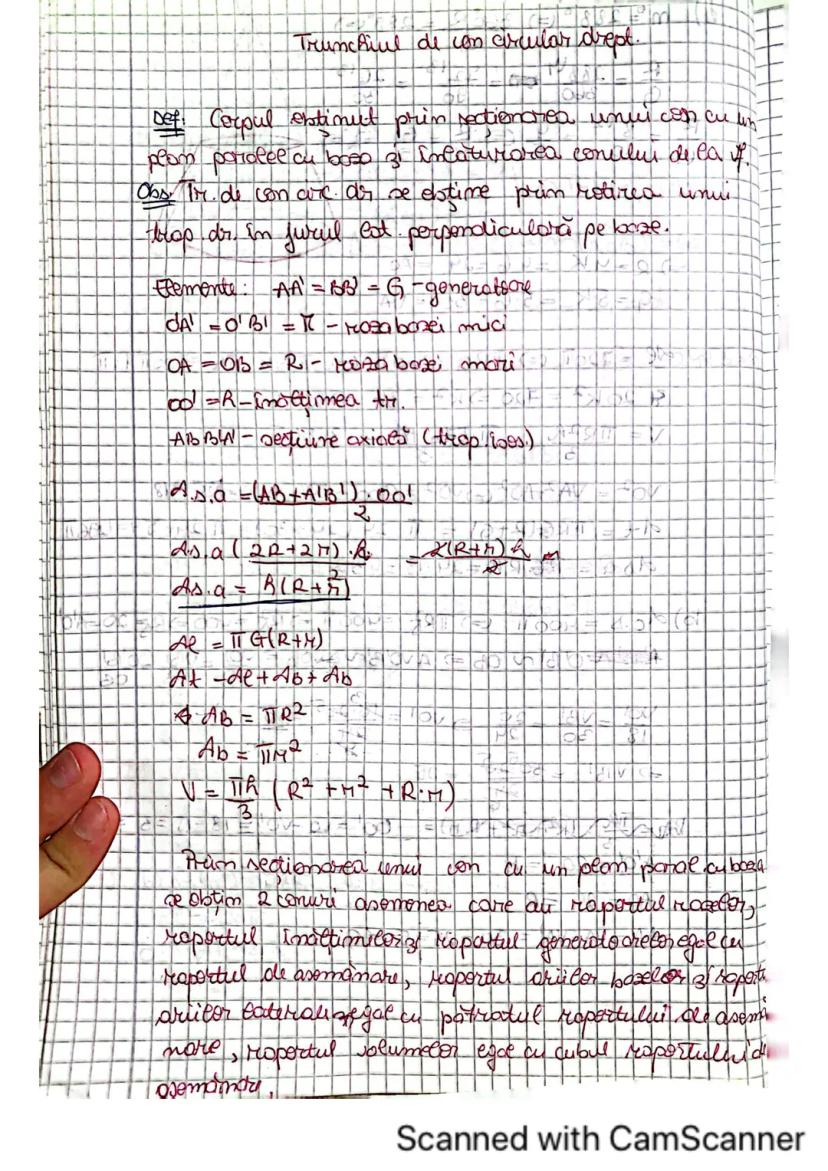 Trunchiul de con circular drept.
Def: Corpul obtinut prin secționarea unui con cu un
plan paralel cu baza și înlăturarea conului de la vf.
Obs Tr. de con circ. dr se obține prin rotirea unui
trap. dr. în jurul lat. perpendiculară pe baze.
Elemente: AA' = BB' = G - generatoare
OA' = O'B' = r - raza bazei mici
OA = OB = R - raza bazei mari
OO' = h - înălțimea tr.
ABB'A' - secțiune axială (trap. isos.)
A.s.a = (AB + A'B') · OO' / 2
As.a (2R + 2r) · h / 2 = 2(R + r) h / 2
As.a = h(R + r)
Al = π G(R + r)
At - Al + Ab + Ab
AB = πR²
Ab = πr²
V = πh / 3 (R² + r² + R·r)
Prin secționarea unui con cu un plan paral cu baza
se obțin 2 conuri asemenea care au raportul razelor,
raportul înălțimilor și raportul generatoarelor egal cu
raportul de asemănare, raportul ariilor bazelor și raport
ariilor laterale egal cu pătratul raportului de asemă
nare, raportul volumelor egal cu cubul raportului d
asemănare.
Scanned with CamScanner